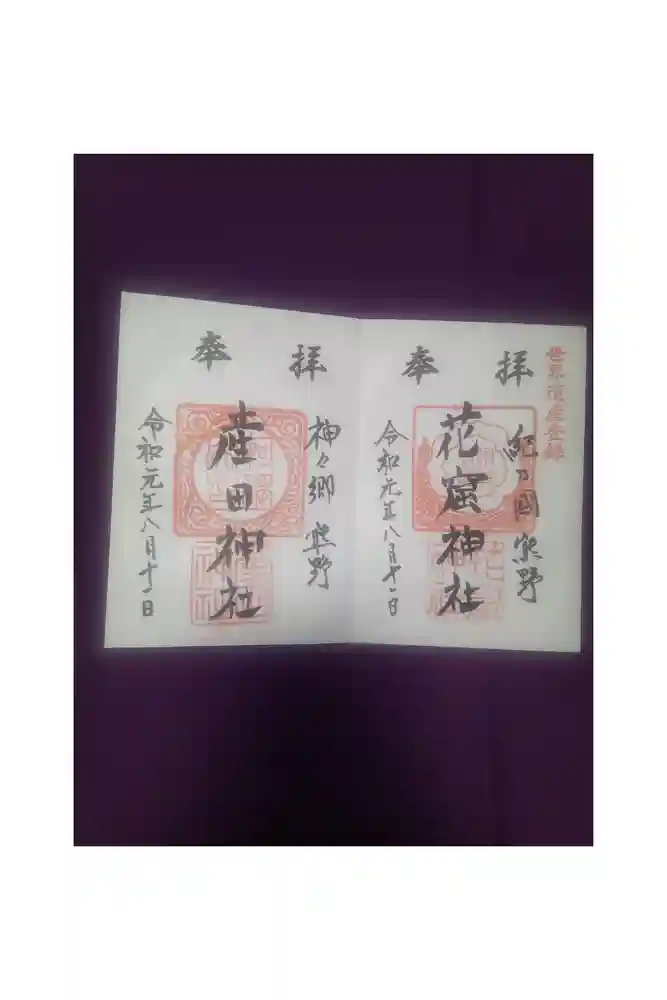 世界遺産登録
奉拝
紀乃國熊野
花窟神社
令和元年八月十一日
奉拝
神々郷熊野
産田神社
令和元年八月十一日